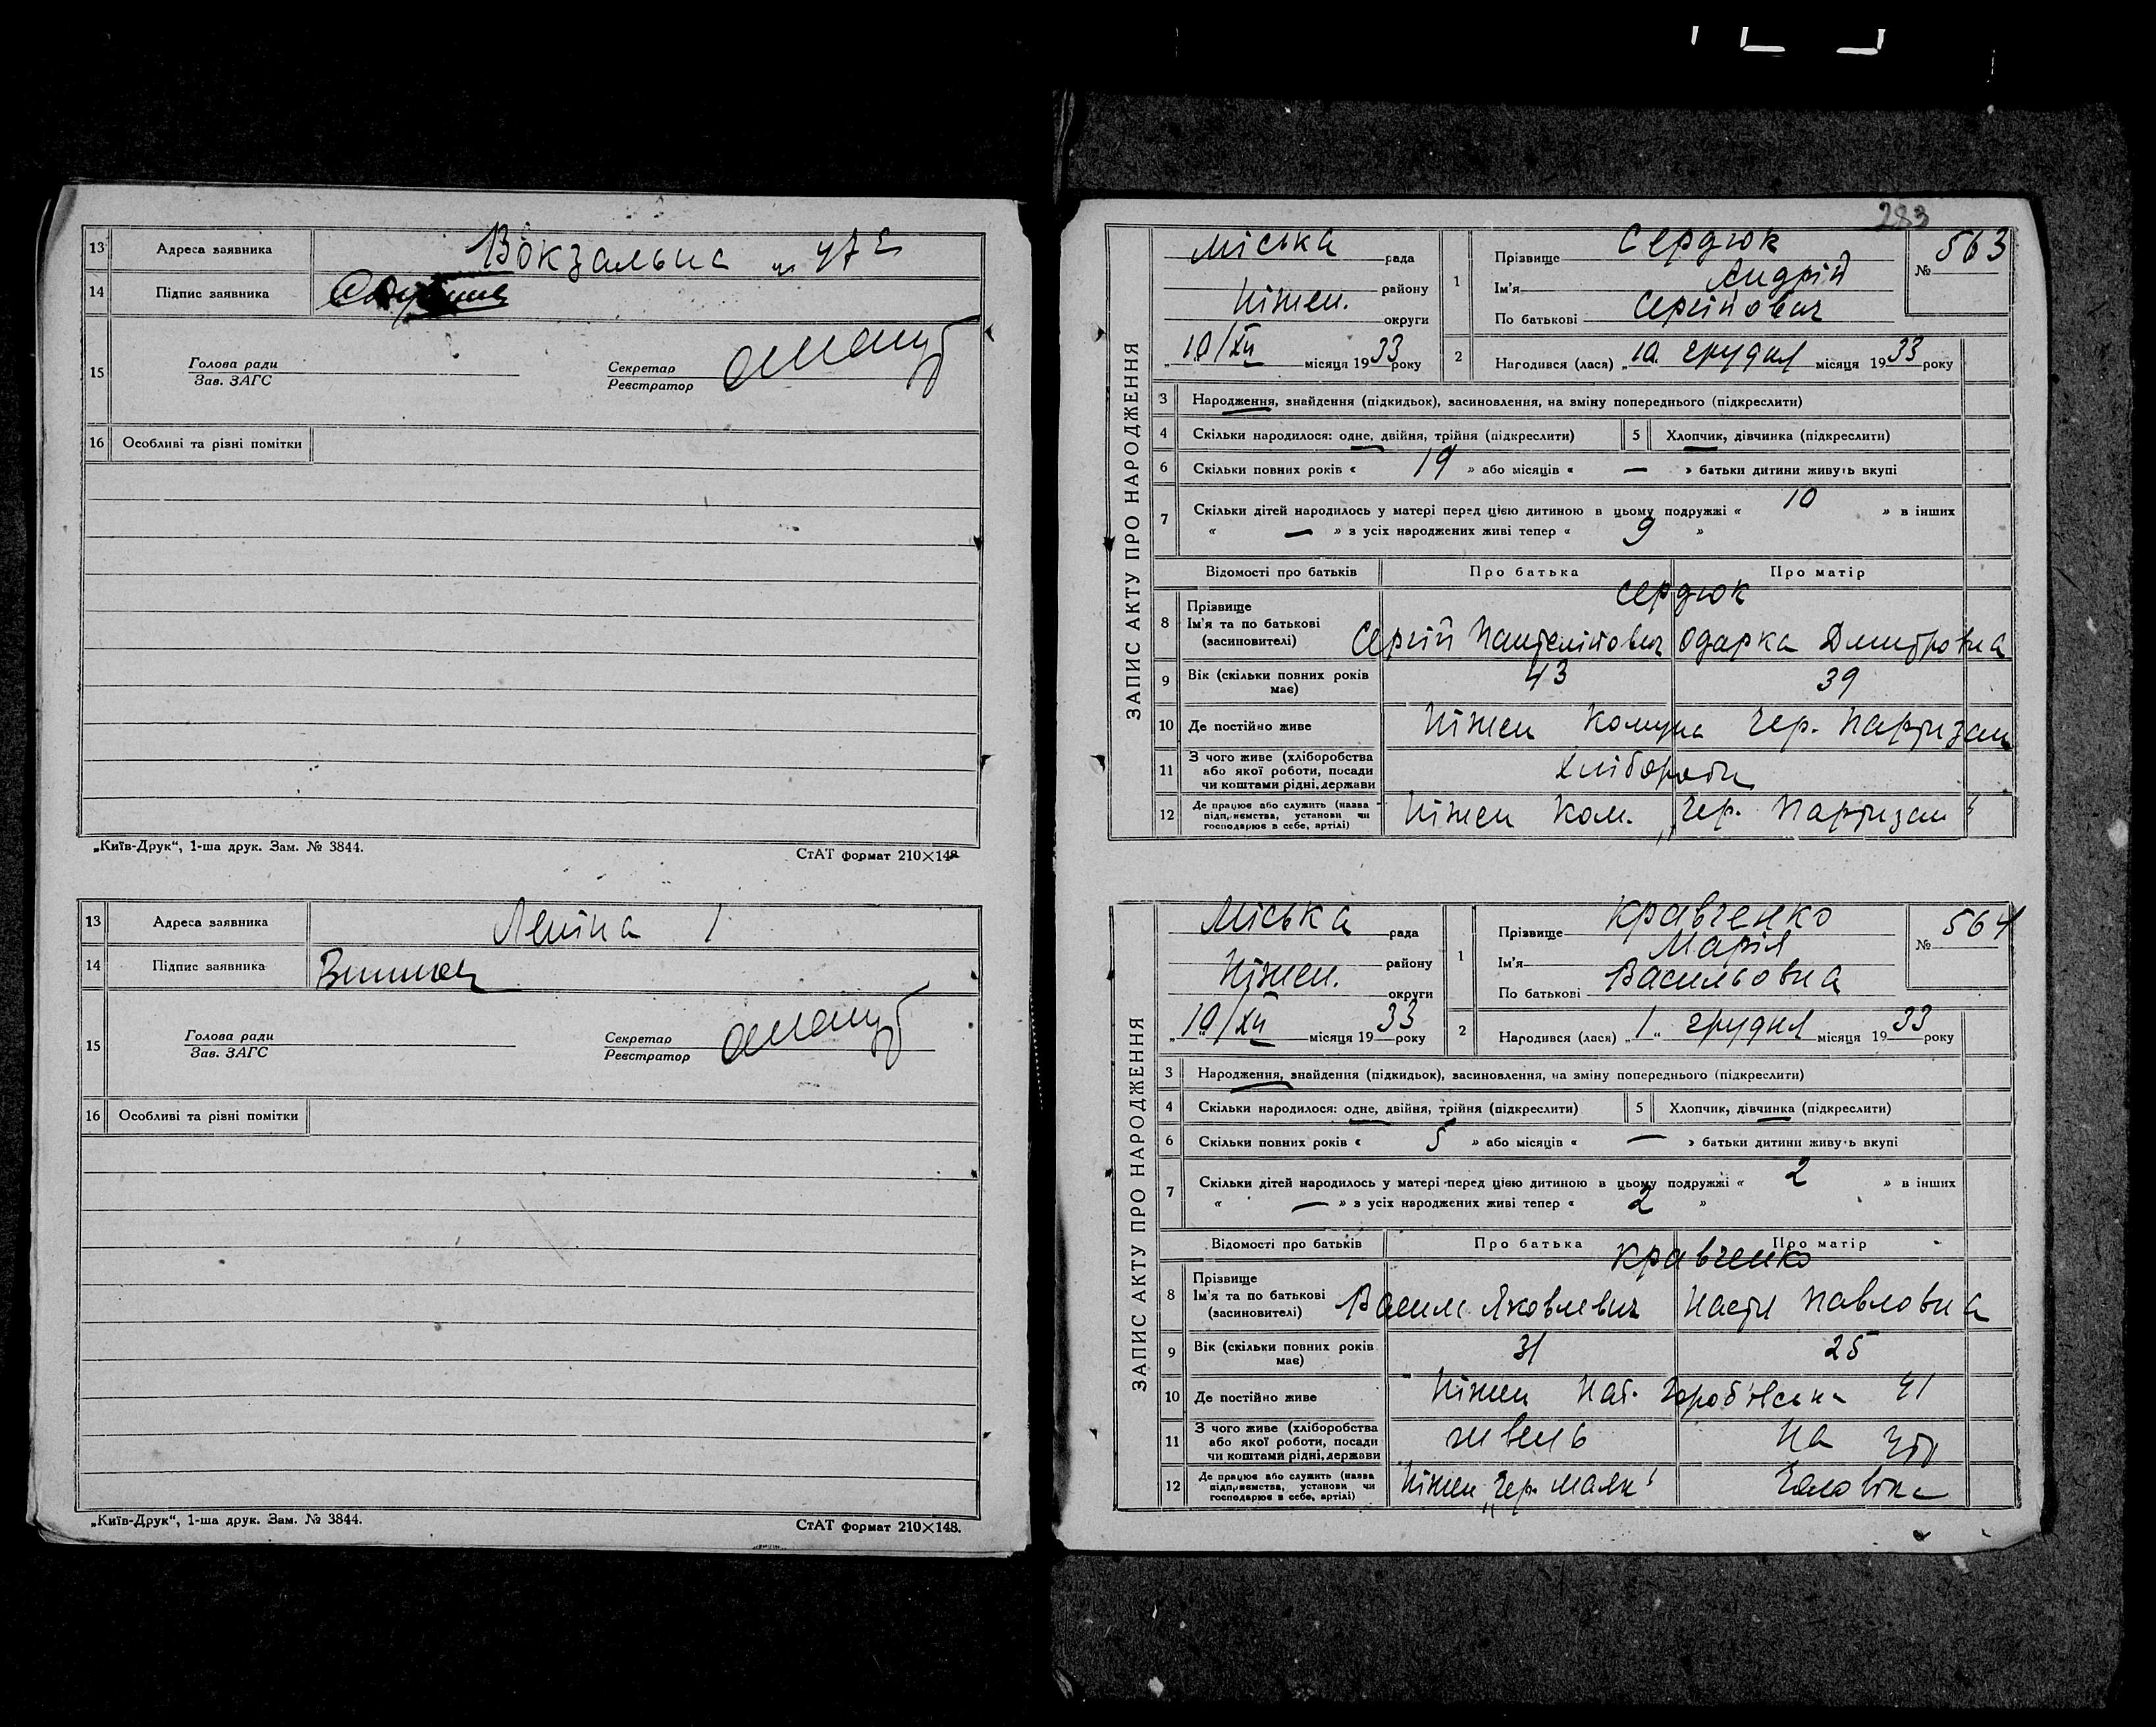 13 Адреса заявника Вокзальна
14 Підпис заявника
15 Голова ради
Зав. ЗАГС
Секретар
Реєстратор
16 Особливі та різні помітки
„Київ-Друк“, 1-ша друк. Зам. № 3844.
СтАТ формат 210×148
13 Адреса заявника Леніна 1
14 Підпис заявника
15 Голова ради
Зав. ЗАГС
Секретар
Реєстратор
16 Особливі та різні помітки
„Київ-Друк“, 1-ша друк. Зам. № 3844.
СтАТ формат 210×148.
283
ЗАПИС АКТУ ПРО НАРОДЖЕННЯ
Міська рада
району
Ніжен. округи
„10/XII місяця 1933 року
1 Прізвище Сердюк
Ім'я Андрій
По батькові Сергійович
№ 563
2 Нагодився (лася) „10 грудня місяця 1933 року
3 Народження, знайдення (підкидьок), засиновлення, на зміну попереднього (підкреслити)
4 Скільки народилося: одне, двійня, трійня (підкреслити) 5 Хлопчик, дівчинка (підкреслити)
6 Скільки повних років « 19 » або місяців « — » батьки дитини живуть вкупі
7 Скільки дітей народилось у матері перед цією дитиною в цьому подружжі « 10 » в інших
« — » з усіх народжених живі тепер « 9 »
Відомості про батьків Про батька Про матір
Сердюк
8 Прізвище
Ім'я та по батькові
(засиновителі) Сергій Пантелійович Одарка Дмитровна
9 Вік (скільки повних років має) 43 39
10 Де постійно живе Ніжен Комуна Чер. Партизан
11 З чого живе (хліборобства
або якої роботи, посади
чи коштами рідні, держави Хлібороби
12 Де працює або служить (назва
підприємства, установи чи
господарює в себе, артілі) Ніжен Ком. „Чер. Партизан“
ЗАПИС АКТУ ПРО НАРОДЖЕННЯ
Міська рада
району
Ніжен. округи
„10/XII місяця 1933 року
1 Прізвище Кравченко
Ім'я Марія
По батькові Васильовна
№ 564
2 Народився (лася) „1“ грудня місяця 1933 року
3 Народження, знайдення (підкидьок), засиновлення, на зміну попереднього (підкреслити)
4 Скільки народилося: одне, двійня, трійня (підкреслити) 5 Хлопчик, дівчинка (підкреслити)
6 Скільки повних років « 5 » або місяців « — » батьки дитини живуть вкупі
7 Скільки дітей народилось у матері перед цією дитиною в цьому подружжі « 2 » в інших
« — » з усіх народжених живі тепер « 2 »
Відомості про батьків Про батька Про матір
Кравченко
8 Прізвище
Ім'я та по батькові
(засиновителі) Василь Яковлевич Настя Павловна
9 Вік (скільки повних років має) 31 25
10 Де постійно живе Ніжен 41
11 З чого живе (хліборобства
або якої роботи, посади
чи коштами рідні, держави на
12 Де працює або служить (назва
підприємства, установи чи
господарює в себе, артілі) Ніжен „Чер. Маяк“ Чоловіка